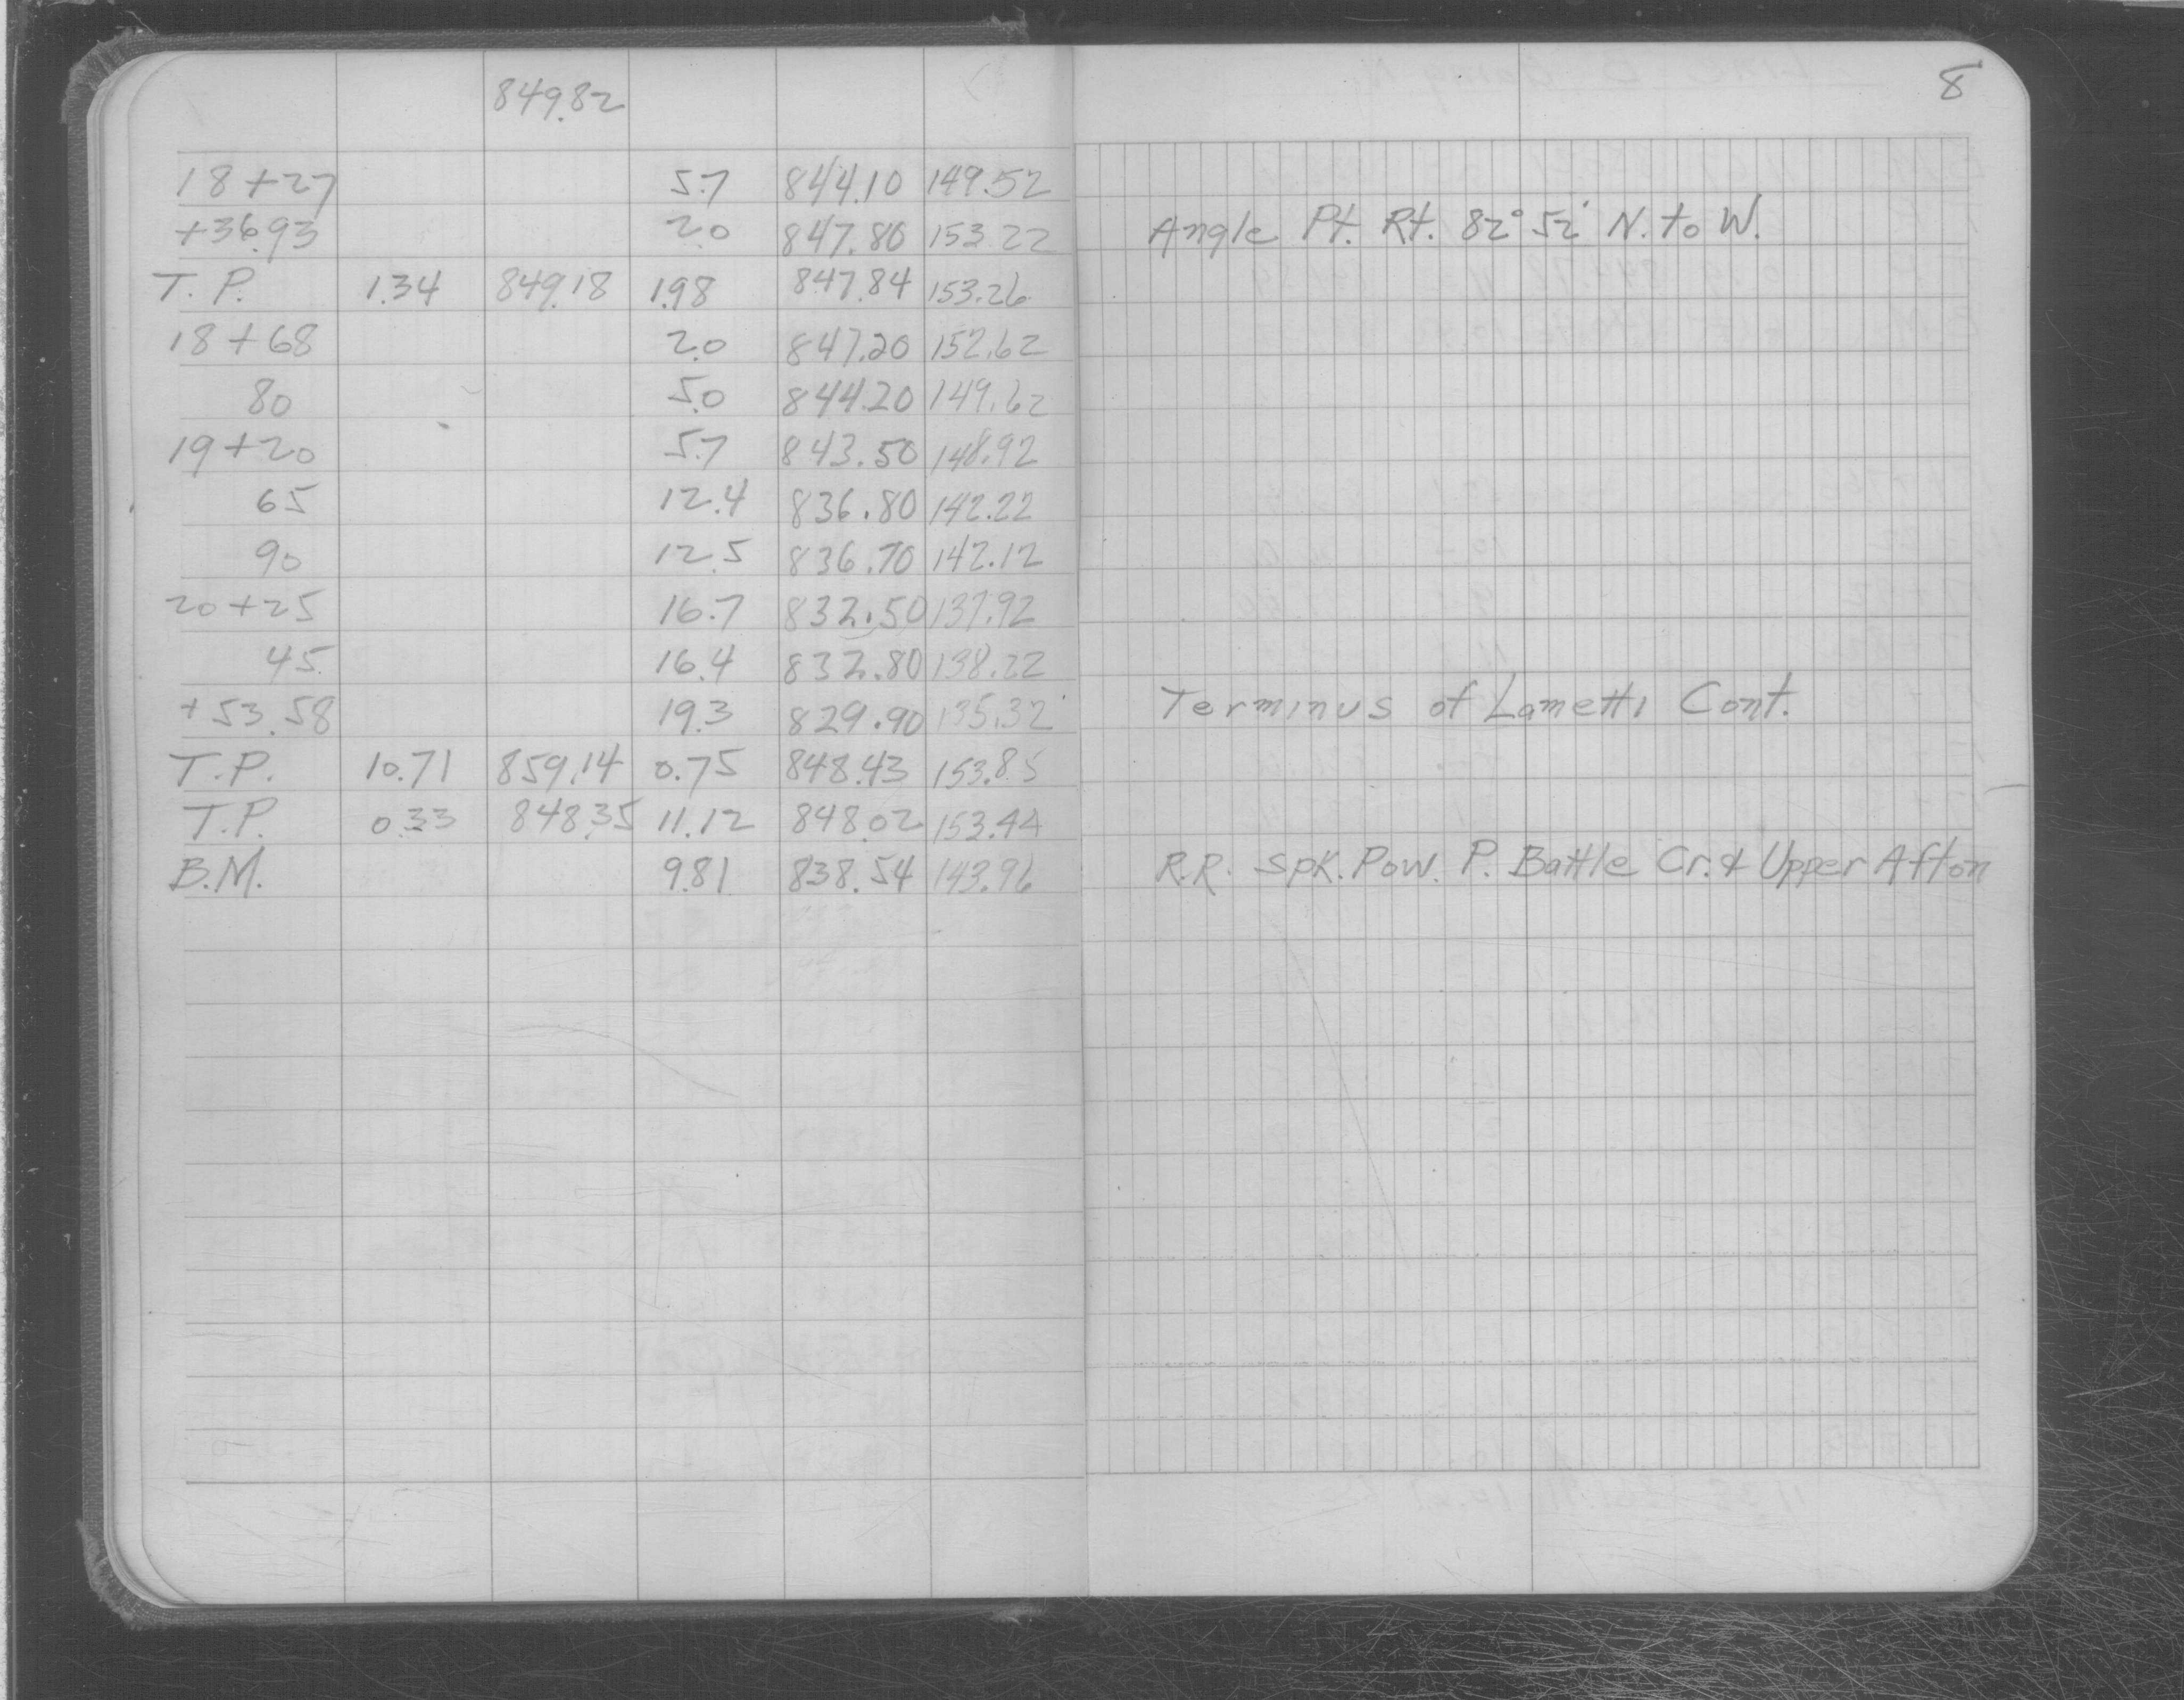 849.82
8
18+27 5.7 844.10 149.52
+36.93 2.0 847.80 153.22 Angle Pt. Rt. 82° 52' N. to W.
T. P. 1.34 849.18 1.98 847.84 153.26
18+68 2.0 847.20 152.62
80 5.0 844.20 149.62
19+20 5.7 843.50 148.92
65 12.4 836.80 142.22
90 12.5 836.70 142.12
20+25 16.7 832.50 137.92
45 16.4 832.80 138.22
+53.58 19.3 829.90 135.32 Terminus of Lametti Cont.
T.P. 10.71 859.14 0.75 848.43 153.85
T.P. 0.33 848.35 11.12 848.02 153.44
B.M. 9.81 838.54 143.96 R.R. Spk. Pow. P. Battle Cr. & Upper Afton